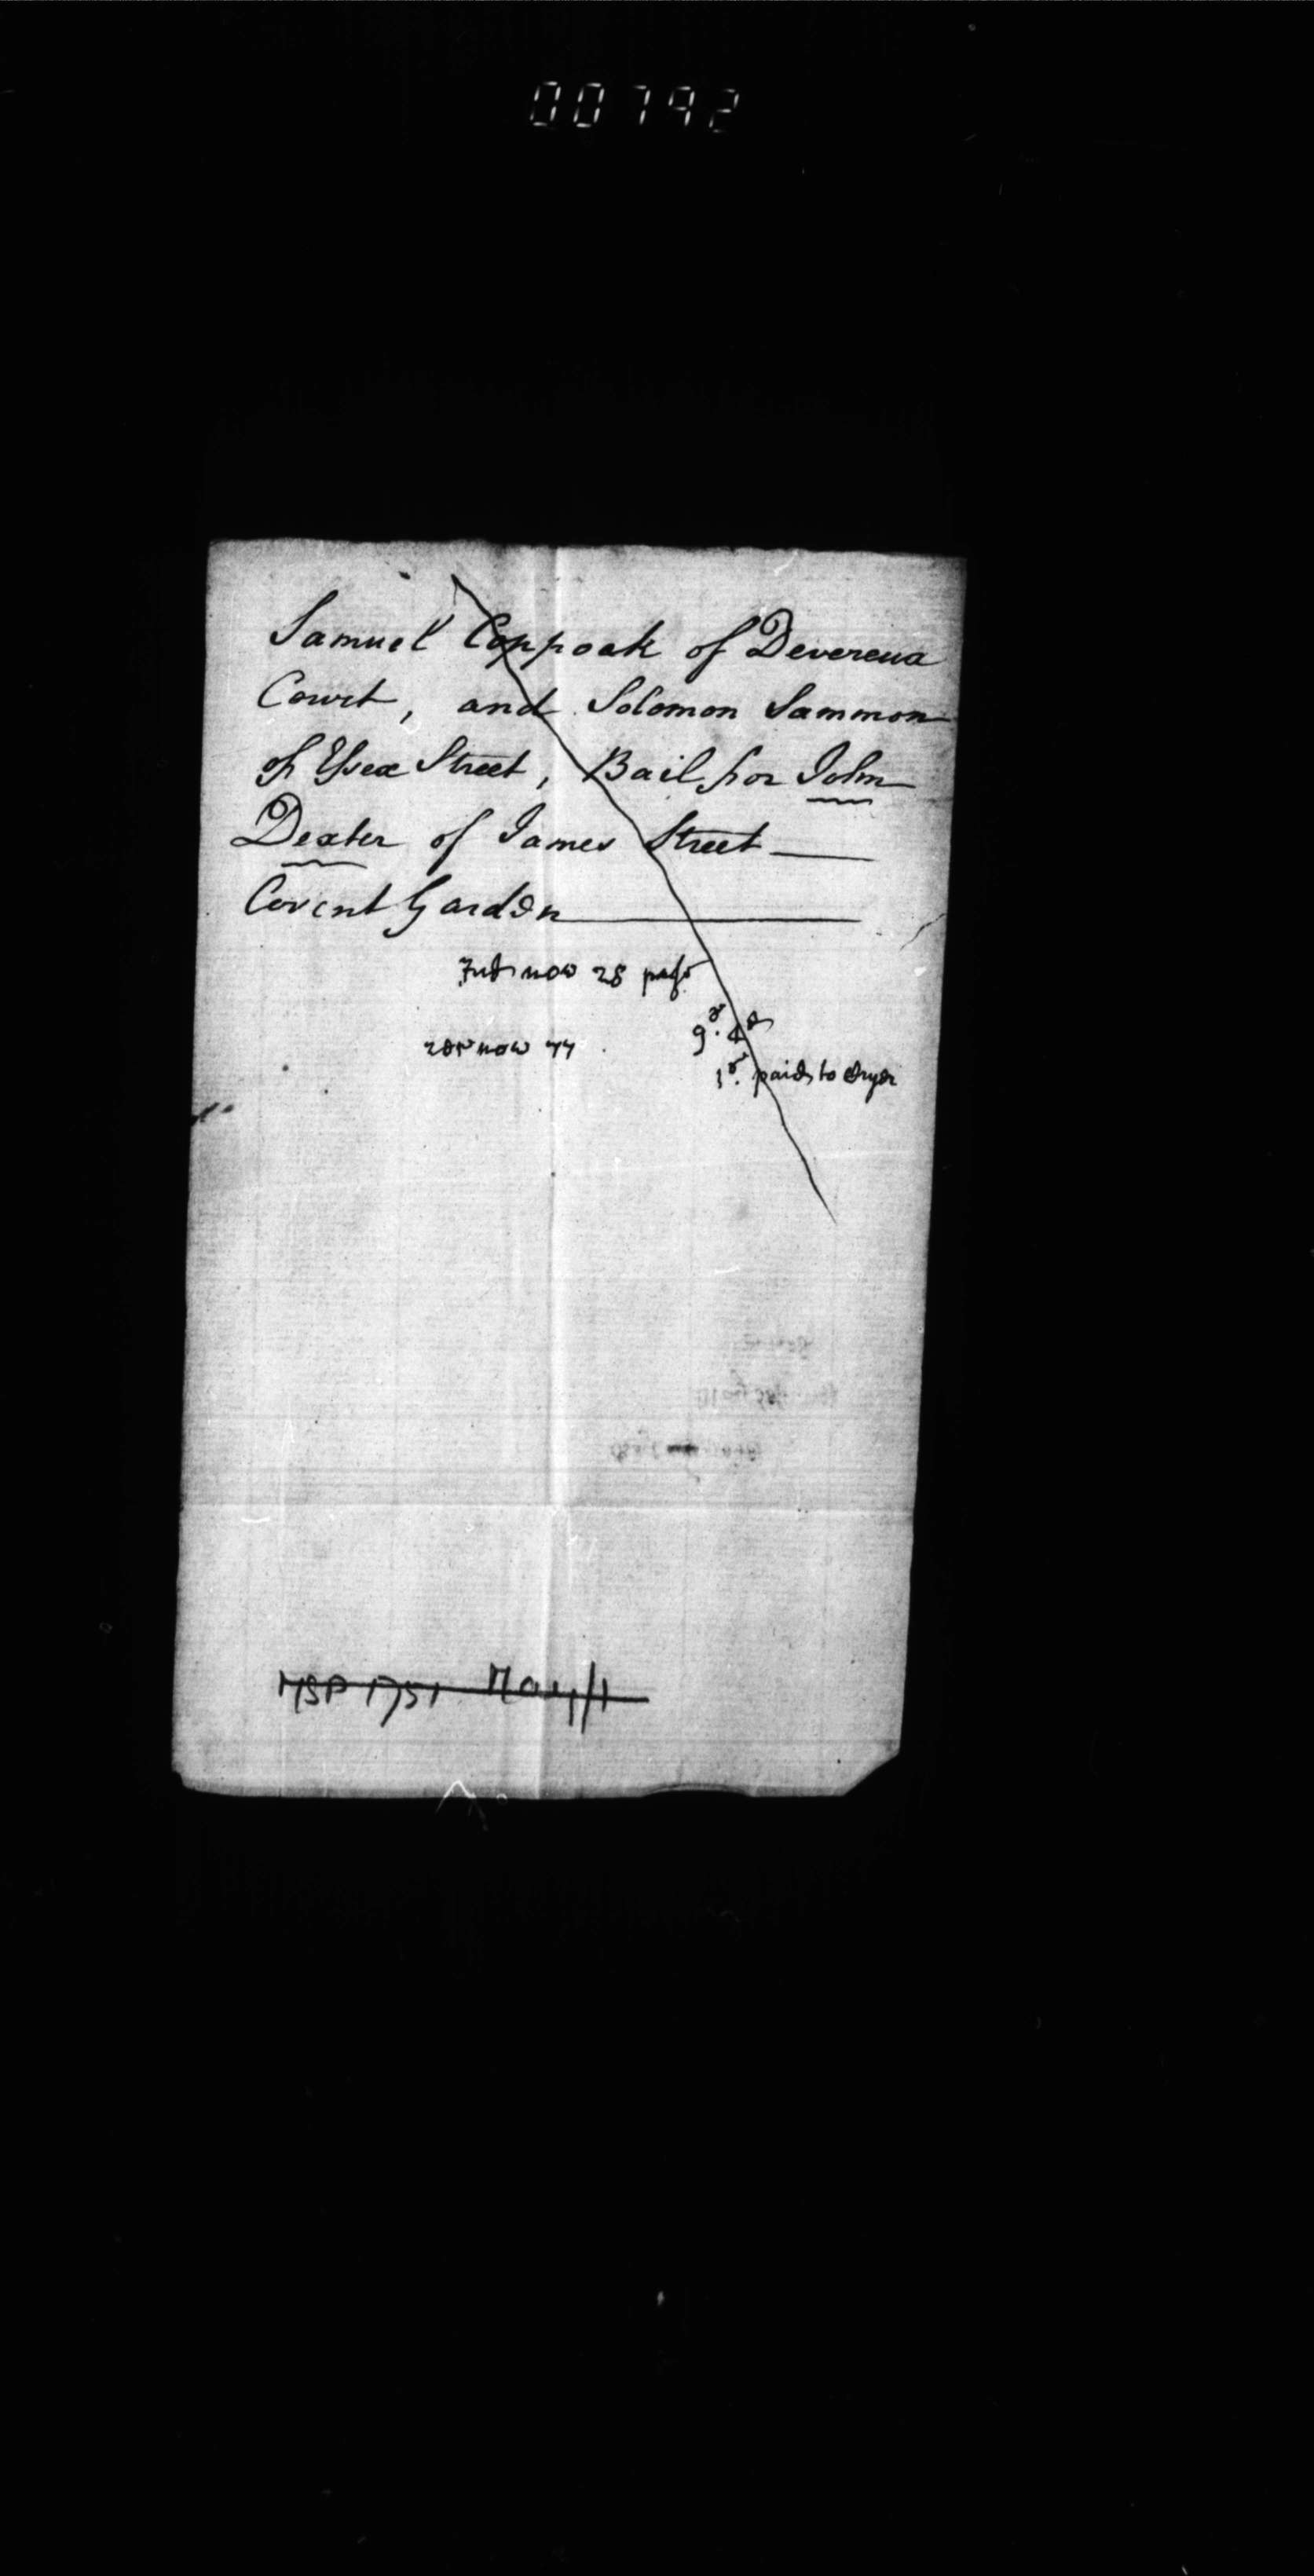 00792
Samuel Coppock of Devereua
Court, and Solomon Sammon
of Essex Street, Bail for John
Dexter of James Street
Covent Garden
now 28
9s. 4d
now 77
1s. paid to Dryer
MSP 1751 May/1